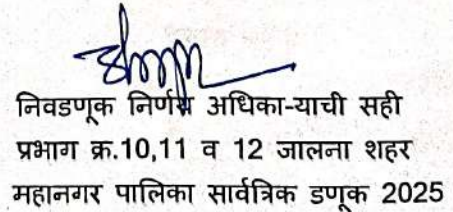 निवडणूक निर्णय अधिका-याची सही
प्रभाग क्र.10,11 व 12 जालना शहर
महानगर पालिका सार्वत्रिक डणूक 2025